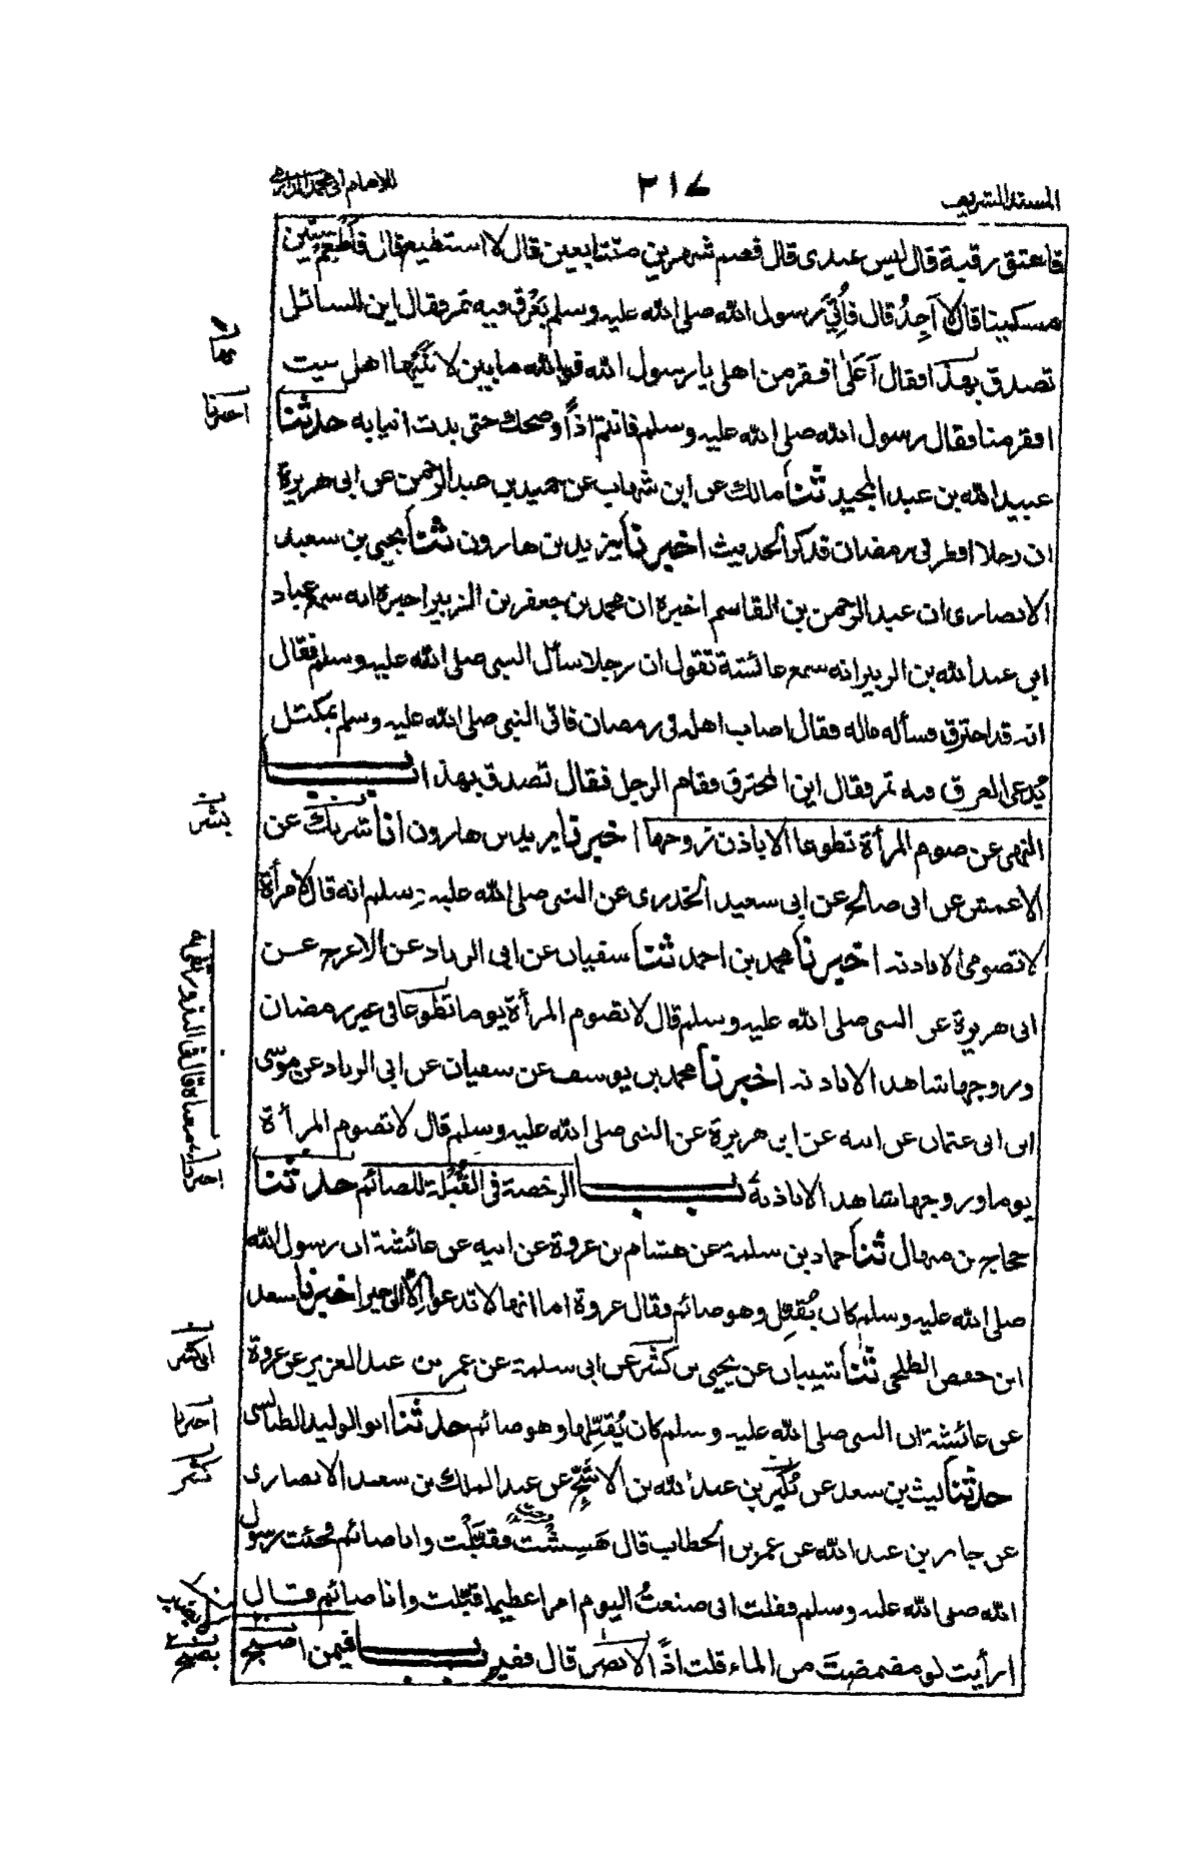 المسند الشريف
٢١٧
للامام ابى محمد الدارمى
فاعتق رقبة قال ليس عندى قال فصم شهرين متتابعين قال لا استطيع قال فاطعم ستين
مسكينا قال لا آجِدُ قال فاُتِيَ رسول الله صلى الله عليه وسلم بعَرْق فيه تمر فقال اين السائل
تصدق بهذا فقال آعَلى افقر من اهلى يا رسول الله فوالله ما بين لابَتَيْها اهل بيت
افقر منا فقال رسول الله صلى الله عليه وسلم فانتم اذاً وضحك حتى بدت انيابه حدثنا
عبيد الله بن عبد المجيد ثنا مالك عن ابن شهاب عن حميد بن عبد الرحمن عن ابى هريرة
ان رجلا افطر فى رمضان فذكر الحديث اخبرنا يزيد بن هارون ثنا يحيى بن سعيد
الانصارى ان عبد الرحمن بن القاسم اخبره ان محمد بن جعفر بن الزبير اخبره انه سمع عباد
ابن عبد الله بن الزبير انه سمع عائشة تقول ان رجلا سأل النبى صلى الله عليه وسلم فقال
انه قد احترق فسأله ماله فقال اصاب اهله فى رمضان فاتى النبى صلى الله عليه وسلم بمكتل
يُدعى العرق فيه تمر فقال اين المحترق فقام الرجل فقال تصدق بهذا باب
النهى عن صوم المرأة تطوعا الا باذن زوجها اخبرنا يزيد بن هارون انا شريك عن
الاعمش عن ابى صالح عن ابى سعيد الخدرى عن النبى صلى الله عليه وسلم انه قال لامرأة
لا تصومى الا باذنه اخبرنا محمد بن احمد ثنا سفيان عن ابى الزناد عن الاعرج عن
ابى هريرة عن النبى صلى الله عليه وسلم قال لا تصوم المرأة يوما تطوعا فى غير رمضان
وزوجها شاهد الا باذنه اخبرنا محمد بن يوسف عن سفيان عن ابى الزناد عن موسى
ابن ابى عثمان عن ابيه عن ابى هريرة عن النبى صلى الله عليه وسلم قال لا تصوم المرأة
يوما وزوجها شاهد الا باذنه باب الرخصة فى القُبْلة للصائم حدثنا
حجاج بن منهال ثنا حماد بن سلمة عن هشام بن عروة عن ابيه عن عائشة ان رسول الله
صلى الله عليه وسلم كان يُقَبِّل وهو صائم فقال عروة اما انها لا تدعو الى خير اخبرنا سعد
ابن حفص الطلحى ثنا شيبان عن يحيى بن كثير عن ابى سلمة عن عمر بن عبد العزيز عن عروة
عن عائشة ان النبى صلى الله عليه وسلم كان يُقَبِّلها وهو صائم حدثنا ابو الوليد الطيالسى
حدثنا ليث بن سعد عن بُكَير بن عبد الله بن الاشج عن عبد الملك بن سعيد الانصارى
عن جابر بن عبد الله عن عمر بن الخطاب قال هَشِشْت فقبَّلت وانا صائم فجئت رسول
الله صلى الله عليه وسلم فقلت انى صنعتُ اليوم امرا عظيما قبّلت وانا صائم قال
ارأيت لو مضمضتَ من الماء قلت اذًا لا يضر قال ففيم باب فيمن اصبح
اخبرنا